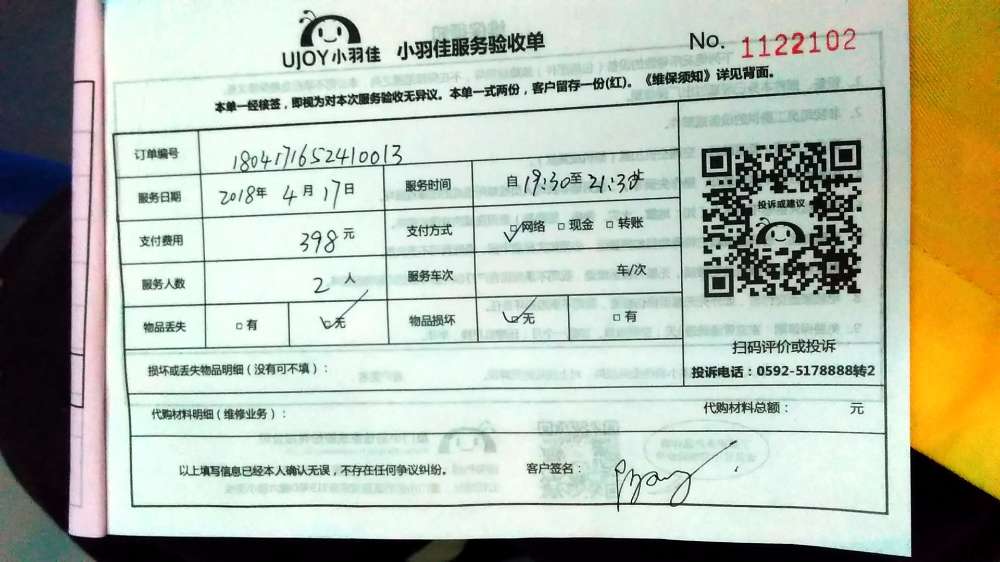 UJOY小羽佳 小羽佳服务验收单 No. 1122102
本单一经核签，即视为对本次服务验收无异议。本单一式两份，客户留存一份(红)。《维保须知》详见背面。
订单编号 1804171652410013
服务日期 2018年 4月17日 服务时间 自19:30至21:30止
支付费用 398元 支付方式 □网络 □现金 □转账
服务人数 2人 服务车次 车/次
物品丢失 □有 □无 物品损坏 □无 □有
投诉或建议
扫码评价或投诉
投诉电话：0592-5178888转2
损坏或丢失物品明细（没有可不填）：
代购材料明细（维修业务）： 代购材料总额： 元
以上填写信息已经本人确认无误，不存在任何争议纠纷。 客户签名：